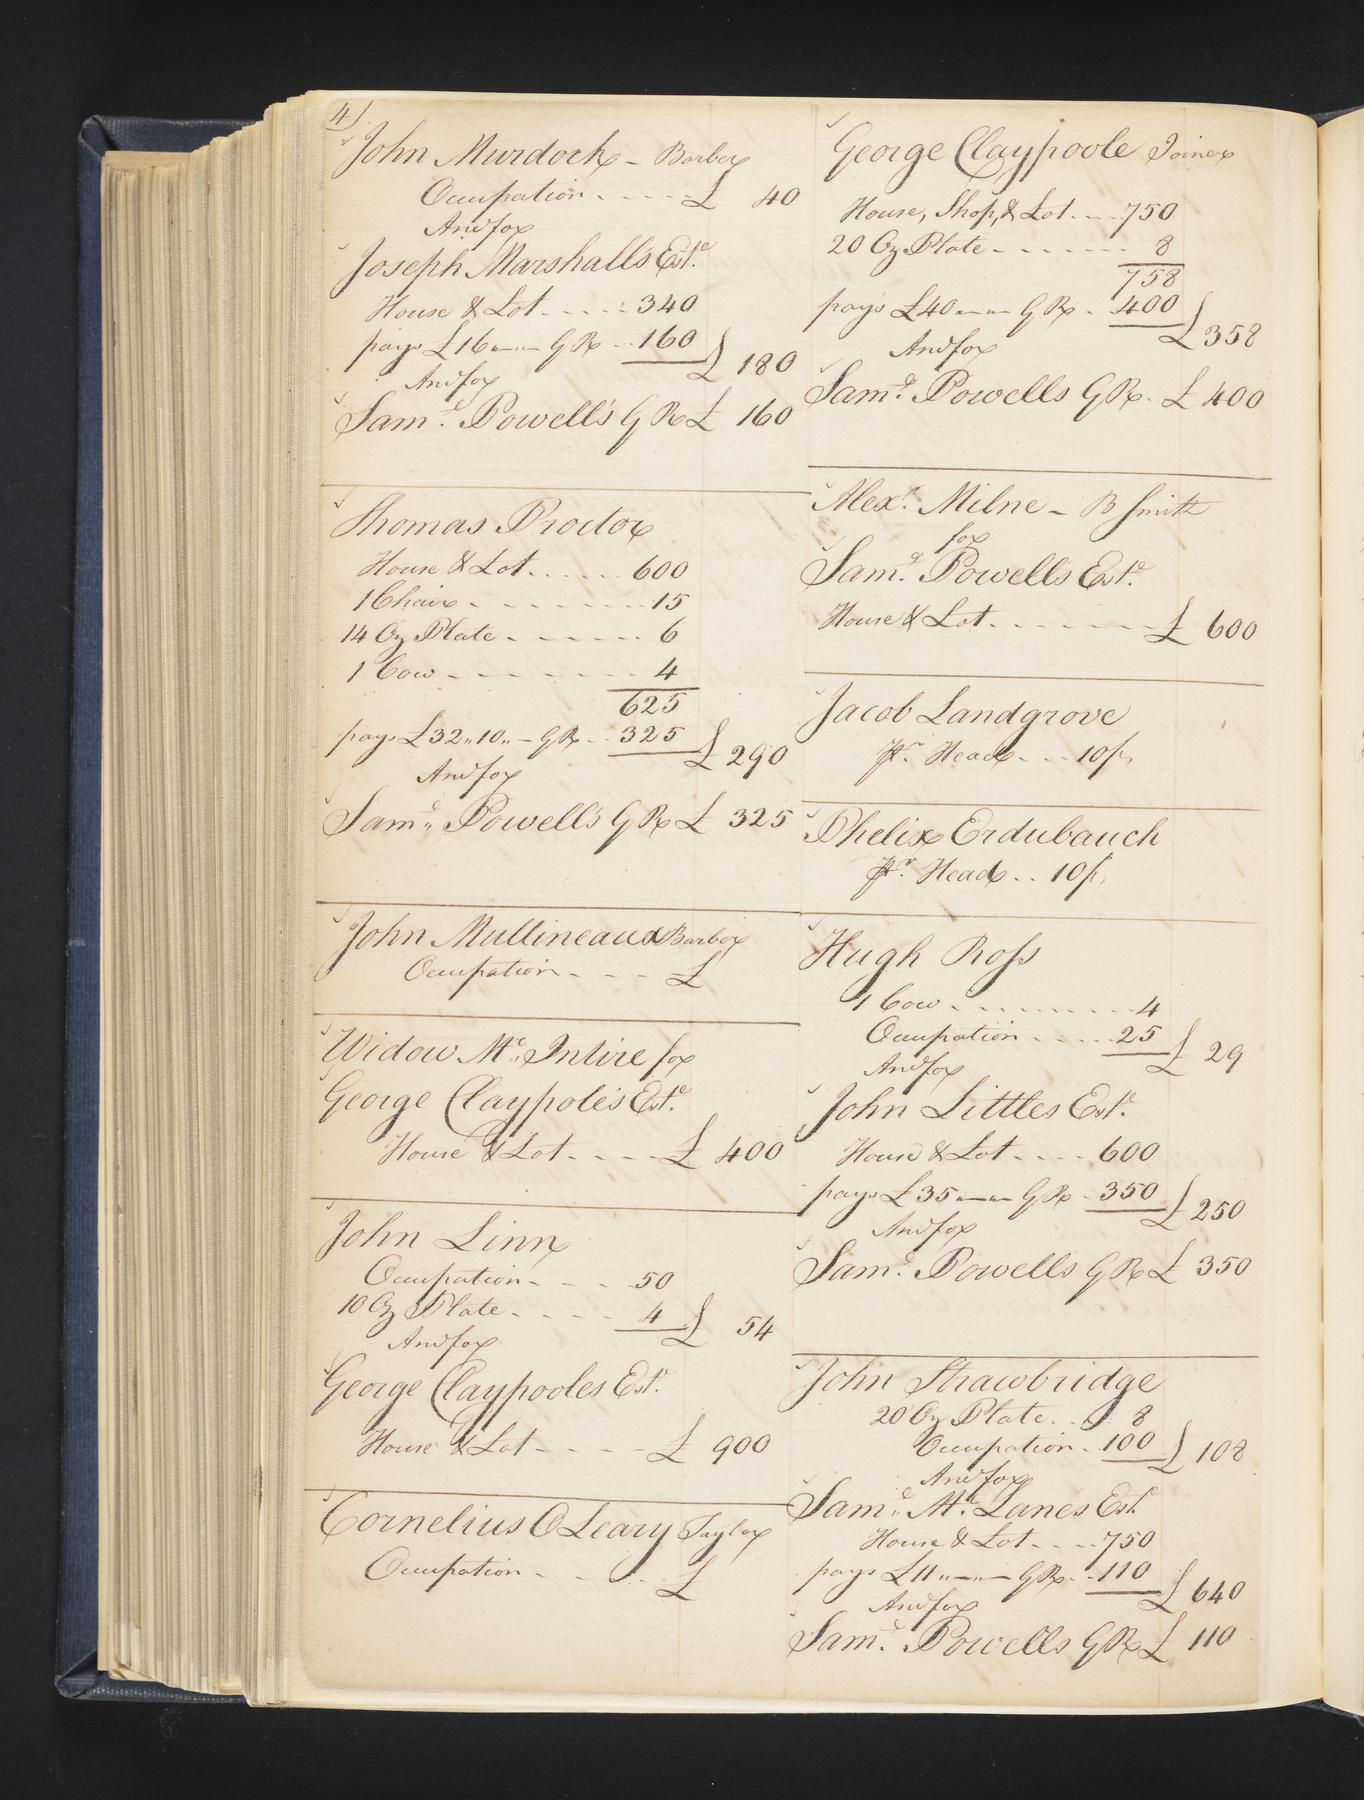 4
John Murdock - Barber
Occupation - - - - £ 40
And for
Joseph Marshall's Est.e
House & Lot - - - - 340
pays £16 - - G R - 160 } £ 180
And for
Sam.l Powell's G R £ 160
Thomas Proctor
House & Lot - - - - 600
1 Chair - - - - 15
14 Oz Plate - - - - 6
1 Cow - - - - 4
625
pays £32,,10,, - G R - 325 } £ 290
And for
Sam.l Powell's G R £ 325
John Mullineaux Barber
Occupation - - - - £
Widow Mc Intire for
George Claypole's Est.e
House & Lot - - - - £ 400
John Linn
Occupation - - - - 50
10 Oz Plate - - - - 4 } £ 54
And for
George Claypooles Est.e
House & Lot - - - - £ 900
Cornelius OLeary Taylor
Occupation - - - - £
George Claypoole Joiner
House, Shop, & Lot - - 750
20 Oz Plate - - - - 8
758
pays £40 - - G R - 400 } £ 358
And for
Sam.l Powells G R - £ 400
Alex.r Milne - B Smith
for
Sam.l Powells Est.e
House & Lot - - - - £ 600
Jacob Landgrove
Pr. Head - - - 10/,
Phelix Erdubauch
Pr. Head - - 10/,
Hugh Ross
1 Cow - - - - 4
Occupation - - - - 25 } £ 29
And for
John Littles Est.e
House & Lot - - - - 600
pays £35 - - G R - 350 } £ 250
And for
Sam.l Powells G R £ 350
John Strawbridge
20 Oz Plate - - - 8
Occupation - 100 } £ 108
And for
Sam.l Mc Lanes Est.e
House & Lot - - - 750
pays £11,, - - G R - 110 } £ 640
And for
Sam.l Powells G R £ 110